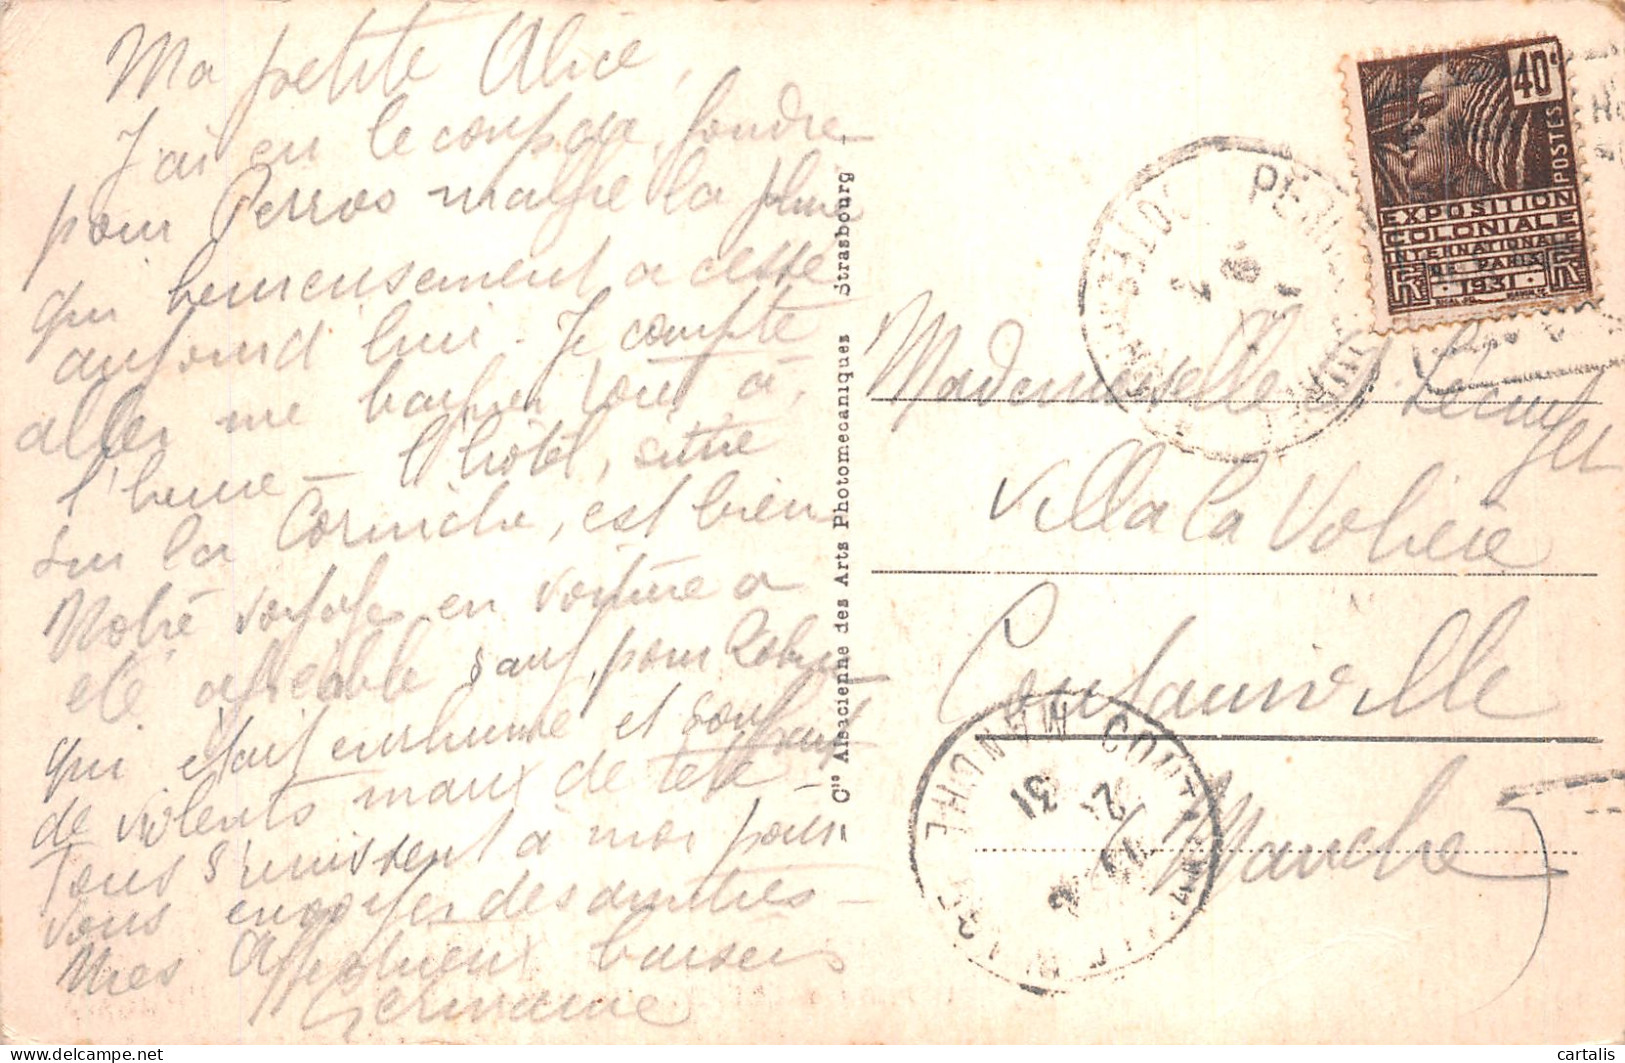 Ma petite Alice,
J'ai eu le coup de foudre
pour Perros malgré la pluie
qui heureusement a cessé
aujourd'hui. Je compte
aller me baigner tout à
l'heure - L'hôtel, situé
sur la Corniche, est bien
Notre voyage en voiture a
été agréable sauf pour
qui était enrhumé et souffrait
de violents maux de tête
Tous s'unissent à moi pour
vous envoyer des amitiés -
Mes affectueux baisers
Germaine
Cie Alsacienne des Arts Photomécaniques Strasbourg
40c
POSTES
EXPOSITION
COLONIALE
INTERNATIONALE
DE PARIS
RF 1931 RF
Mademoiselle A. Lécuyer
Villa La Volière
Coutainville
Manche
MANCHE
31
cartalis
delcampe.net